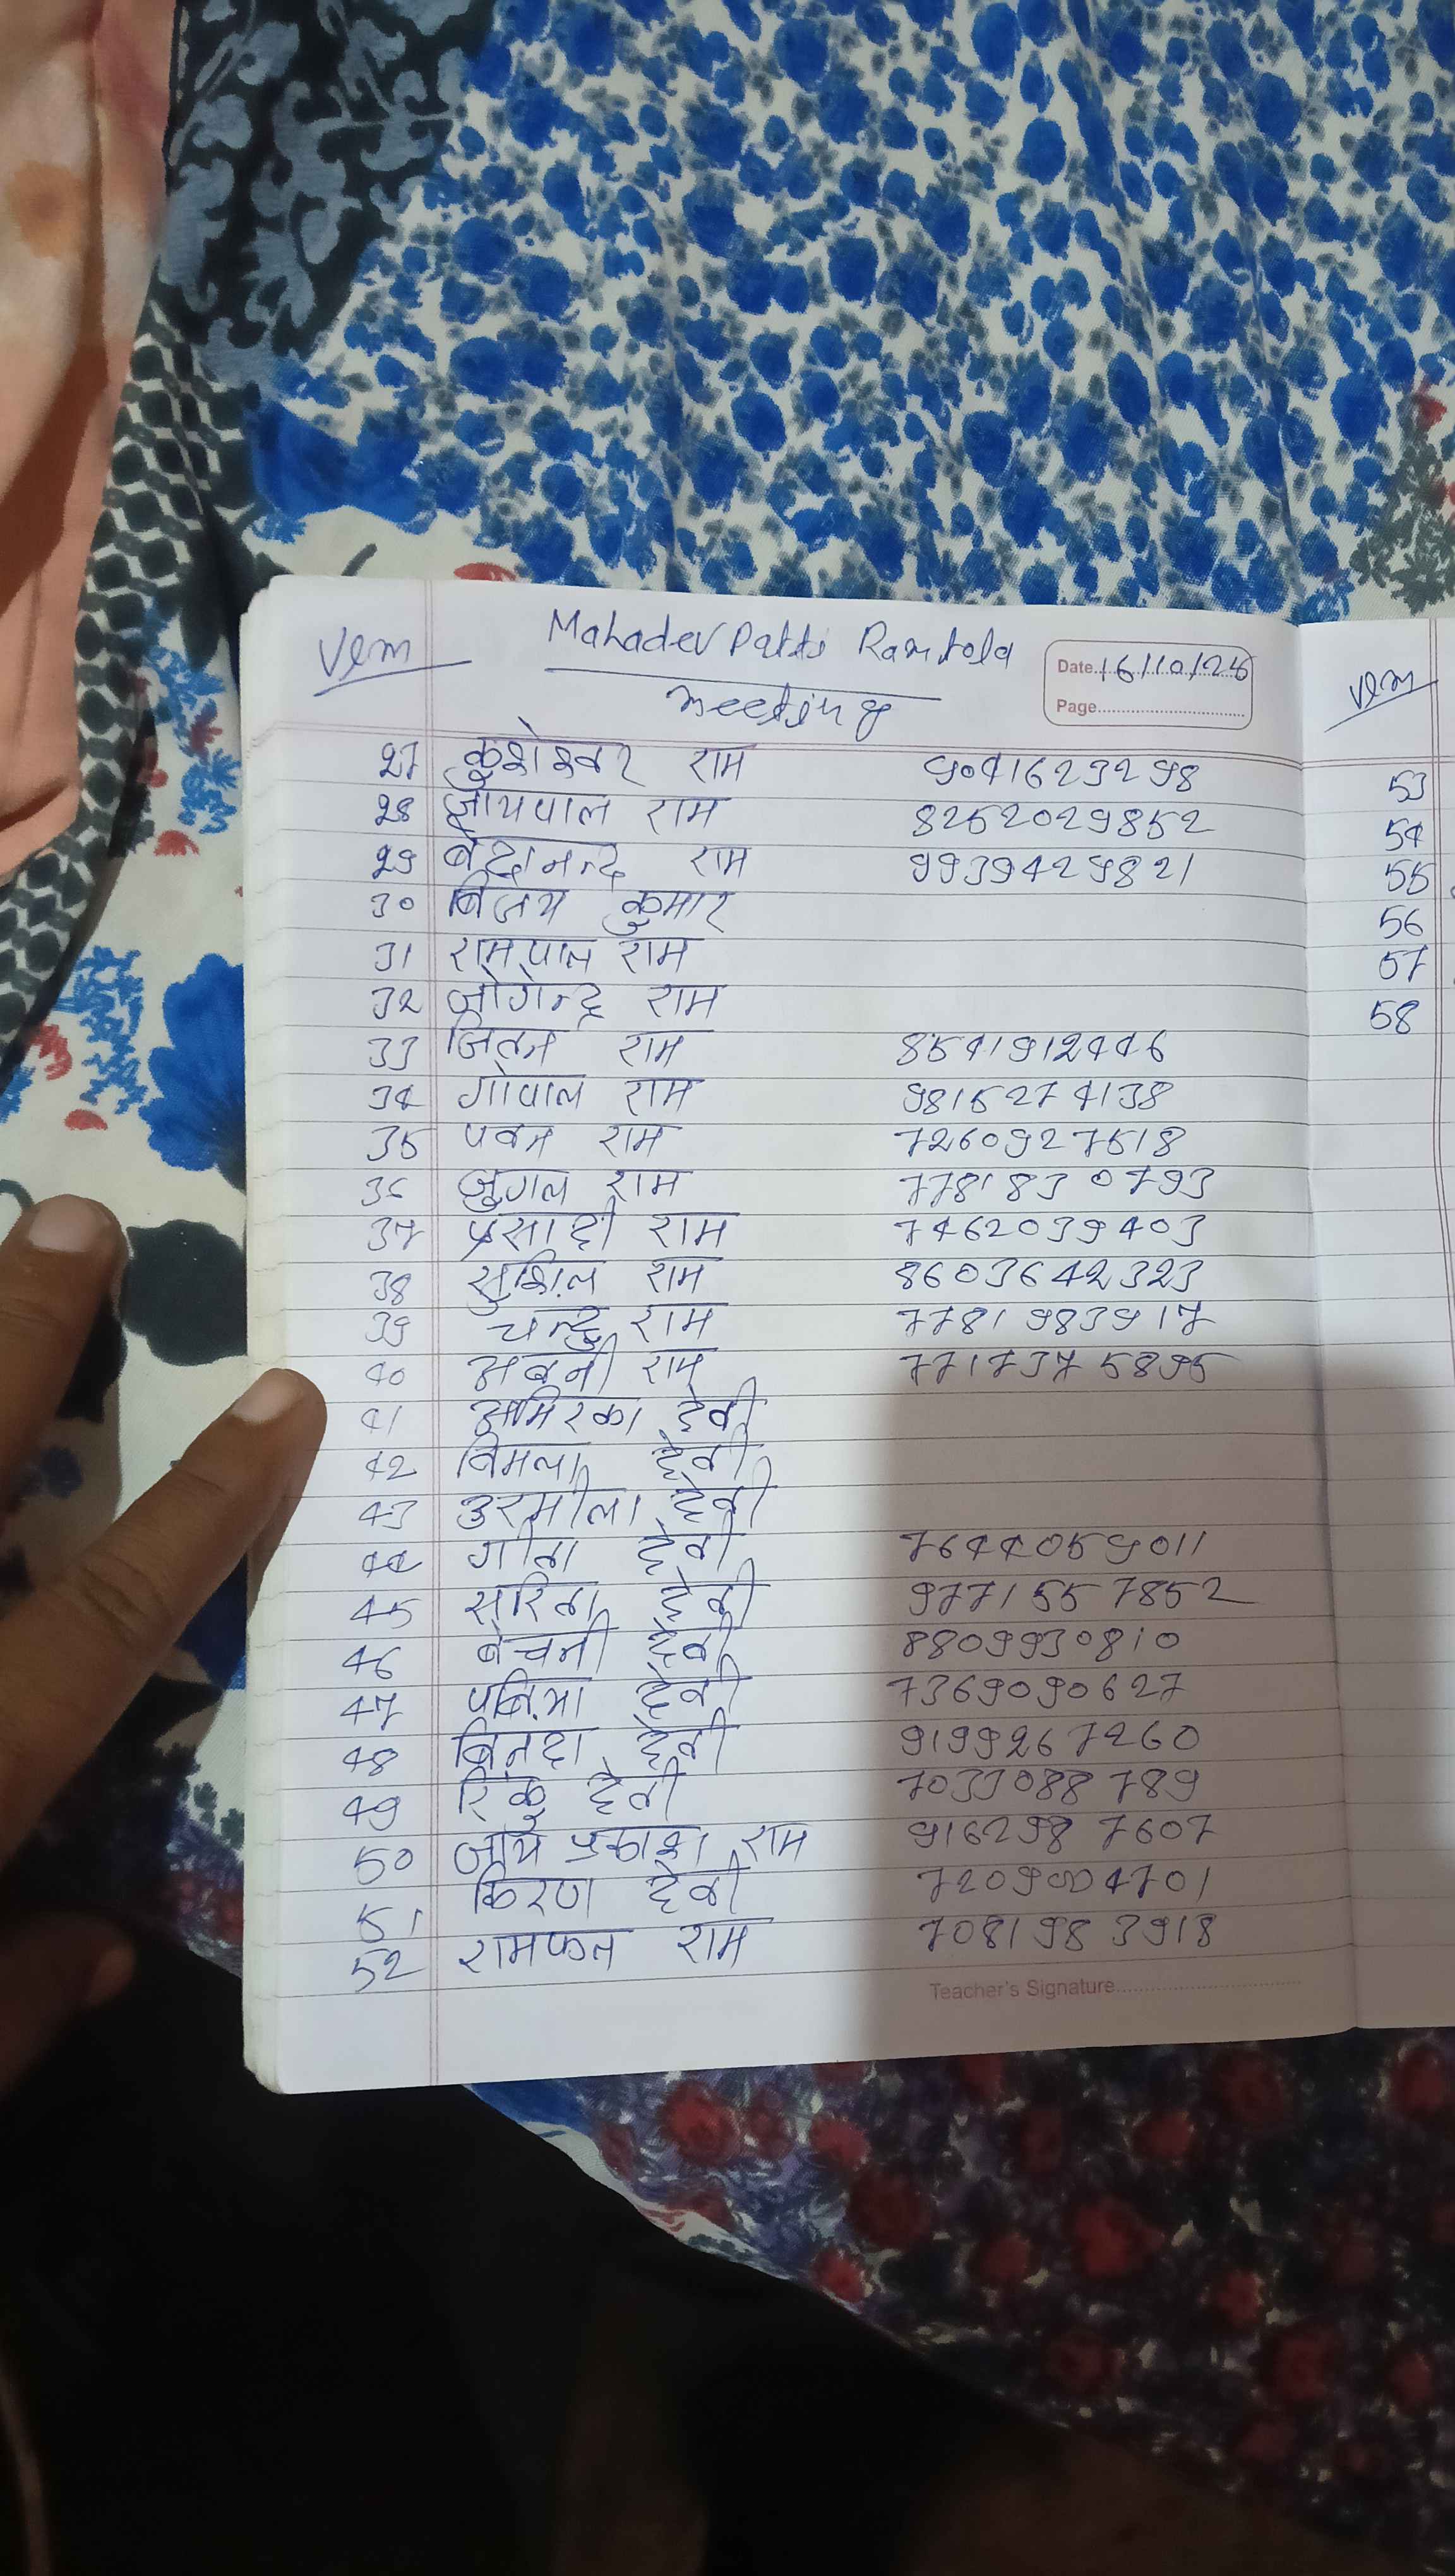 Vem
Mahadev Patti Ramtola
meeting
Date 16/10/25
Page
27 कुशेश्वर राम 9041623298
28 जायपाल राम 8252029852
29 बेदानन्द राम 9939429821
30 बिजय कुमार
31 रामपाल राम
32 जोगेन्द्र राम
33 जितन राम 8541912446
34 गोपाल राम 9815274138
35 पवन राम 7260927518
36 जुगल राम 7781830793
37 प्रसादी राम 7462039403
38 सुशिल राम 8603642323
39 चन्दु राम 7781983917
40 अबनी राम 7717375895
41 अमिरका देवी
42 विमला देवी
43 उरमीला देवी
44 गीता देवी 7644059011
45 सरिता देवी 9771557852
46 बेचनी देवी 8809930810
47 देवी 7369090627
48 देवी 9199267260
49 रिंकू देवी 7033088789
50 जाय प्रकाश राम 9162987607
51 किरण देवी 7209004701
52 रामफल राम 7081983918
Teacher's Signature
Vem
53
54
55
56
57
58